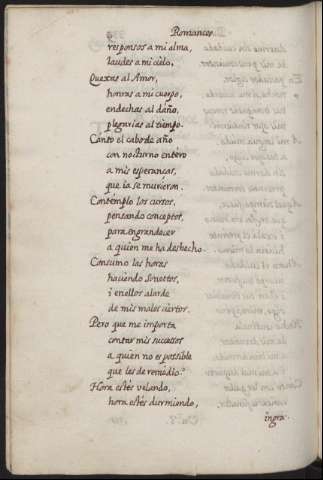 Romances.
responsos a mi alma,
laudes a mi cielo,
Quexas al Amor,
honras a mi cuerpo,
endechas al daño,
plegarias al tiempo.
Canto el cabo de año
con nocturno entero
a mis esperanças,
que ia se murieron.
Contemplo los cortes,
pensando conceptos,
para engrandecer
a quien me ha deshecho.
Consumo las horas
haciendo Sonettos,
i en ellos alarde
de mis males ciertos.
Pero que me importa
contar mis successos
a quien no es possible
que les de remedio?
Hora estés velando,
hora estés durmiendo,
ingra-